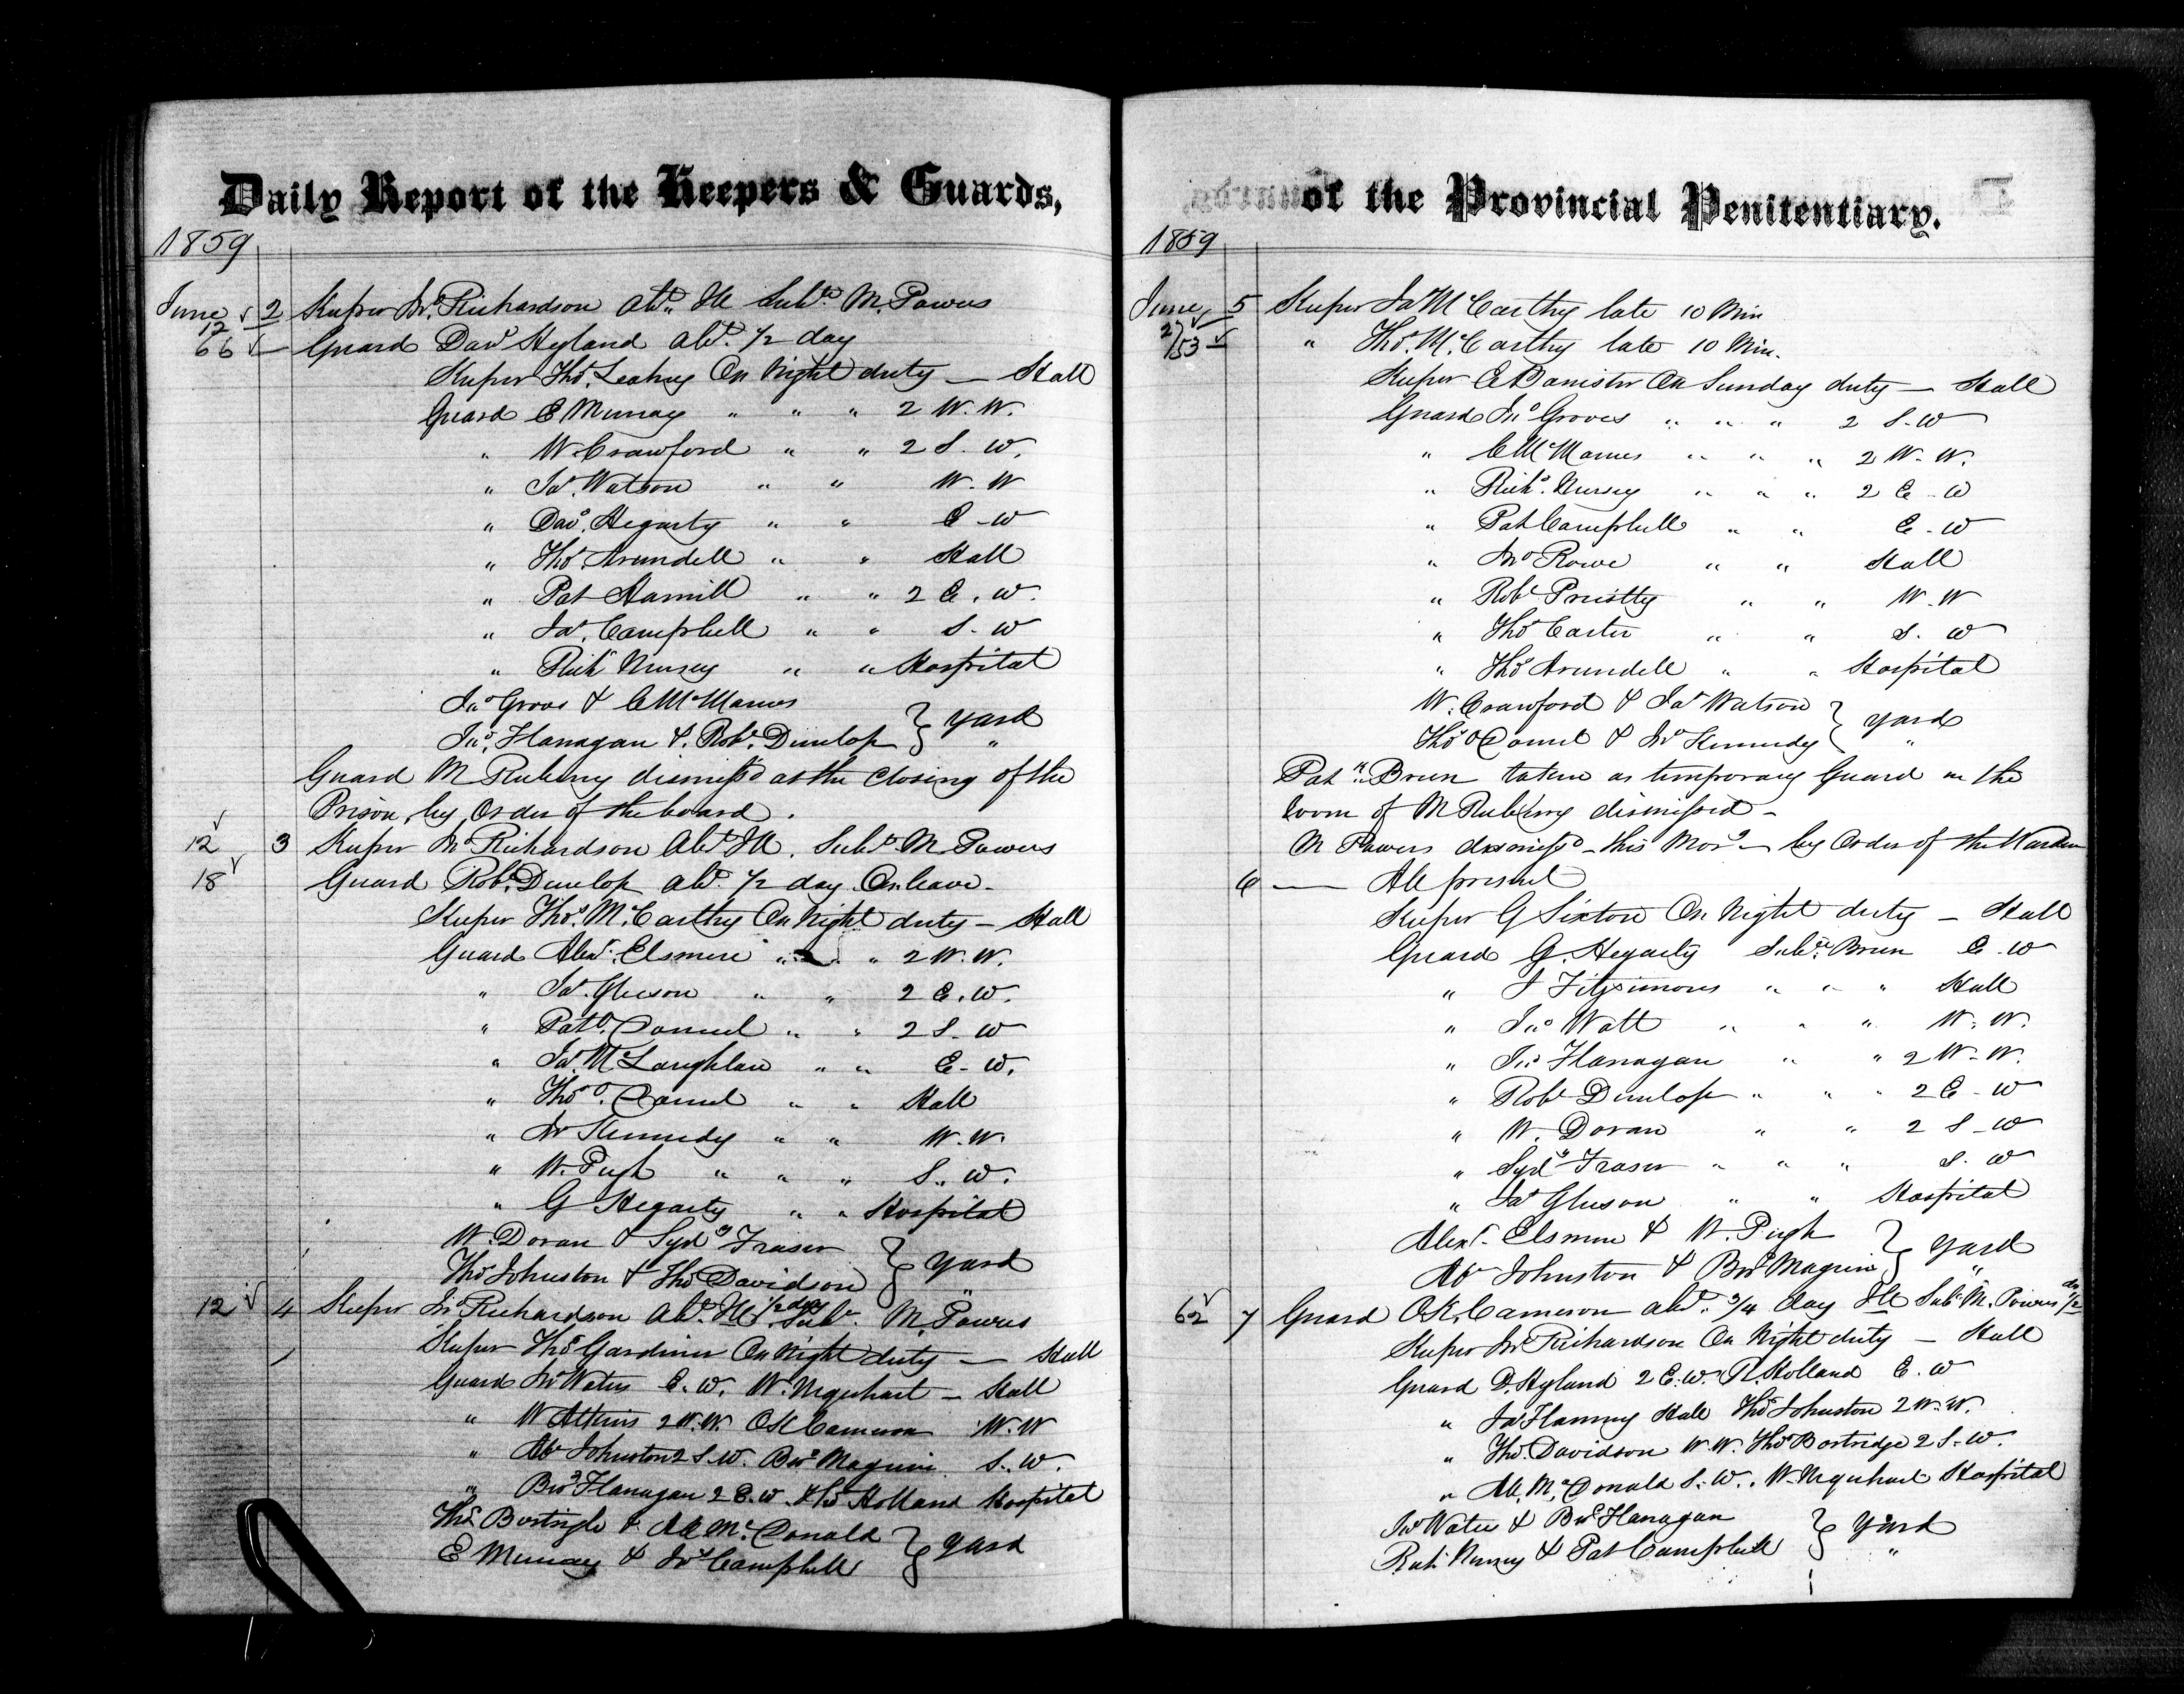 Daily Report of the Keepers & Guards,
1859
June 2 Keeper Jno. Richardson Abt. Ill Subte M. Powers
12
66 — Guard Davd Hyland Abt. 1/2 day
Keeper Thos. Leahy On Night duty — Hall
Guard E Murray " " " 2 W. W.
" W. Crawford " " 2 S. W.
" Jas. Watson " " W. W
" Davd. Hegarty " " E - W
" Thos. Arundell " " Hall
" Pat Hamill " " 2 E. W.
" Jas. Campbell " " S. W
" Richd Nursey " " Hospital
Jno Groves & C McManus
Jno. Flanagan & Robt. Dunlop } Yard
Guard M Rubery dismissd at the Closing of the
Prison, by Order of the board.
12 3 Keeper Jno Richardson Abt Ill. Subte M Powers
18 Guard Robt. Dunlop Abt. 1/2 day On leave.
Keeper Thos. McCarthy On Night duty — Hall
Guard Alexr. Elsmere " " " 2 W. W.
" Jas. Gleeson " " 2 E. W.
" Pat O. Connel " " 2 S. W
" Jas. McLaughlan " " E. W.
" Thos O. Connel " " Hall
" Jno Kennedy " " W. W.
" W. Pugh " " " S. W.
" G Hegarty " " Hospital
W. Doran & Sydy Fraser
Thos Johnston & Thos Davidson } Yard
12 4 Keeper Jno Richardson Abt. Ill 1/2 day Subt. M. Powers
Keeper Thos Gardiner On Night duty — Hall
Guard Jno Waters E. W. W. Urquhart — Hall
" W Atkins 2 W. W. O K Cameron W. W
" Ab Johnston 2 S. W. Bnd Maguire S. W.
" Bnd Flanagan 2 E. W. Holland Hospital
Thos & Al McDonald
E Murray & Jas Campbell } Yard
of the Provincial Penitentiary.
1859
June 5 Keeper Jas McCarthy late 10 Min
27
153 " Thos. McCarthy late 10 Min.
Keeper E Banister On Sunday duty — Hall
Guard Jno Groves " " " 2 S. W
" C McManus " " " 2 W. W.
" Richd. Nursey " " " 2 E. W
" Pat Campbell " " E - W
" Jno Rowe " " Hall
" Robt Priestly " " W. W
" Thos Carter " " S. W
" Thos Arundell " " Hospital
W. Crawford & Jas Watson
Thos O Connel & Jno Kennedy } Yard
Patk Brien taken as temporary Guard in the
room of M Rubery dismissed —
M Powers dismissd this Morg — by Order of the Warden
6 — All present
Keeper G Sexton On Night duty — Hall
Guard G. Hegarty Subte. Brien E. W
" J Fitzsimons " " " Hall
" Jno Watt " " " W. W.
" Jno Flanagan " " 2 W. W.
" Robt Dunlop " " " 2 E - W
" W. Doran " " 2 S - W
" Sydy Fraser " " " S. W
" Jas Gleeson " " Hospital
Alexr. Elsmere & W. Pugh
Ab Johnston & Bnd Maguire } Yard
62 7 Guard O K. Cameron abt. 3/4 day Ill Subt. M. Powers 1/2
Keeper Jno Richardson On Night duty — Hall
Guard D. Hyland 2 E. W. R Holland E. W
" Jas Flaming Hall Thos Johnston 2 W. W.
" Thos Davidson W. W. Thos Bostridge 2 S. W.
" Al. McDonald S. W. W. Urquhart Hospital
Jno Waters & Bnd Flanagan
Richd Nursey & Pat Campbell } Yard